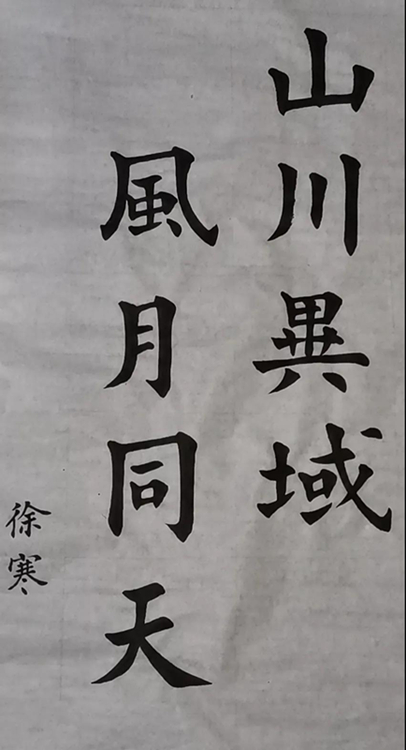 山川異域
風月同天
徐寒